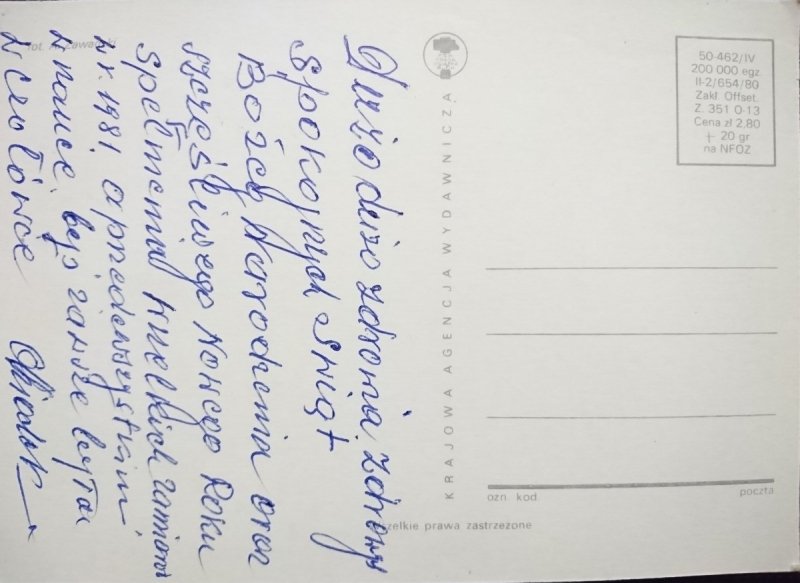 Dużo dużo zdrowia, zdrowych
Spokojnych Świąt
Bożego Narodzenia oraz
szczęśliwego Nowego Roku
Spełnienia wszelkich zamiarów
w r. 1981, a przedewszystkim
w nauce, byś zawsze był w
w czołówce
fot.
KRAJOWA AGENCJA WYDAWNICZA
50-462/IV
200 000 egz.
II-2/654/80
Zakł. Offset.
Z. 351 O-13
Cena zł 2,80
+ 20 gr
na NFOZ
ozn. kod
poczta
prawa zastrzeżone